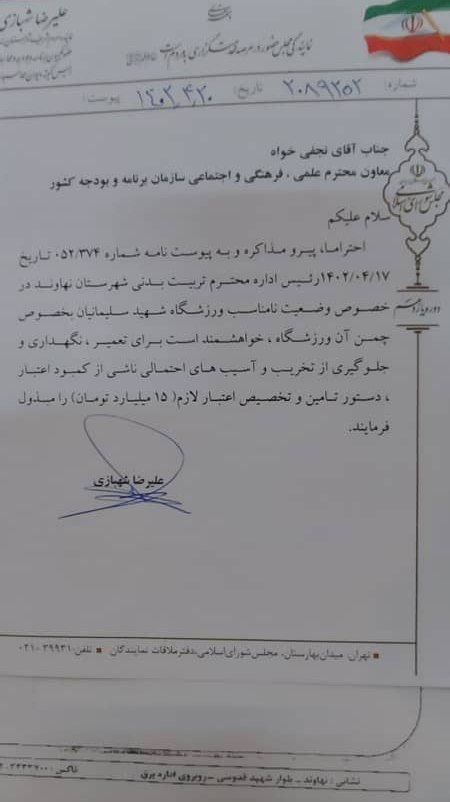 علیرضا شهبازی
نمایندگی مجلس حضور در عرصه
شماره: ۲۰۸۹۲۵۲ تاریخ: ۱۴۰۲,۴,۲۰ پیوست:
جناب آقای نجفی خواه
معاون محترم علمی ، فرهنگی و اجتماعی سازمان برنامه و بودجه کشور
سلام علیکم
احتراما، پیرو مذاکره و به پیوست نامه شماره ۰۵۲.۳۷۴ تاریخ
۱۴۰۲/۰۴/۱۷رئیس اداره محترم تربیت بدنی شهرستان نهاوند در
خصوص وضعیت نامناسب ورزشگاه شهید سلیمانیان بخصوص
چمن آن ورزشگاه ، خواهشمند است برای تعمیر ، نگهداری و
جلوگیری از تخریب و آسیب های احتمالی ناشی از کمبود اعتبار
، دستور تامین و تخصیص اعتبار لازم( ۱۵ میلیارد تومان) را مبذول
فرمایند.
علیرضا شهبازی
مجلس شورای اسلامی
دوره یازدهم
تهران، میدان بهارستان، مجلس شورای اسلامی، دفتر ملاقات نمایندگان ■ تلفن: ۳۹۹۳۱-۰۲۱
نشانی : نهاوند - بلوار شهید قدوسی - روبروی اداره برق
فاکس :